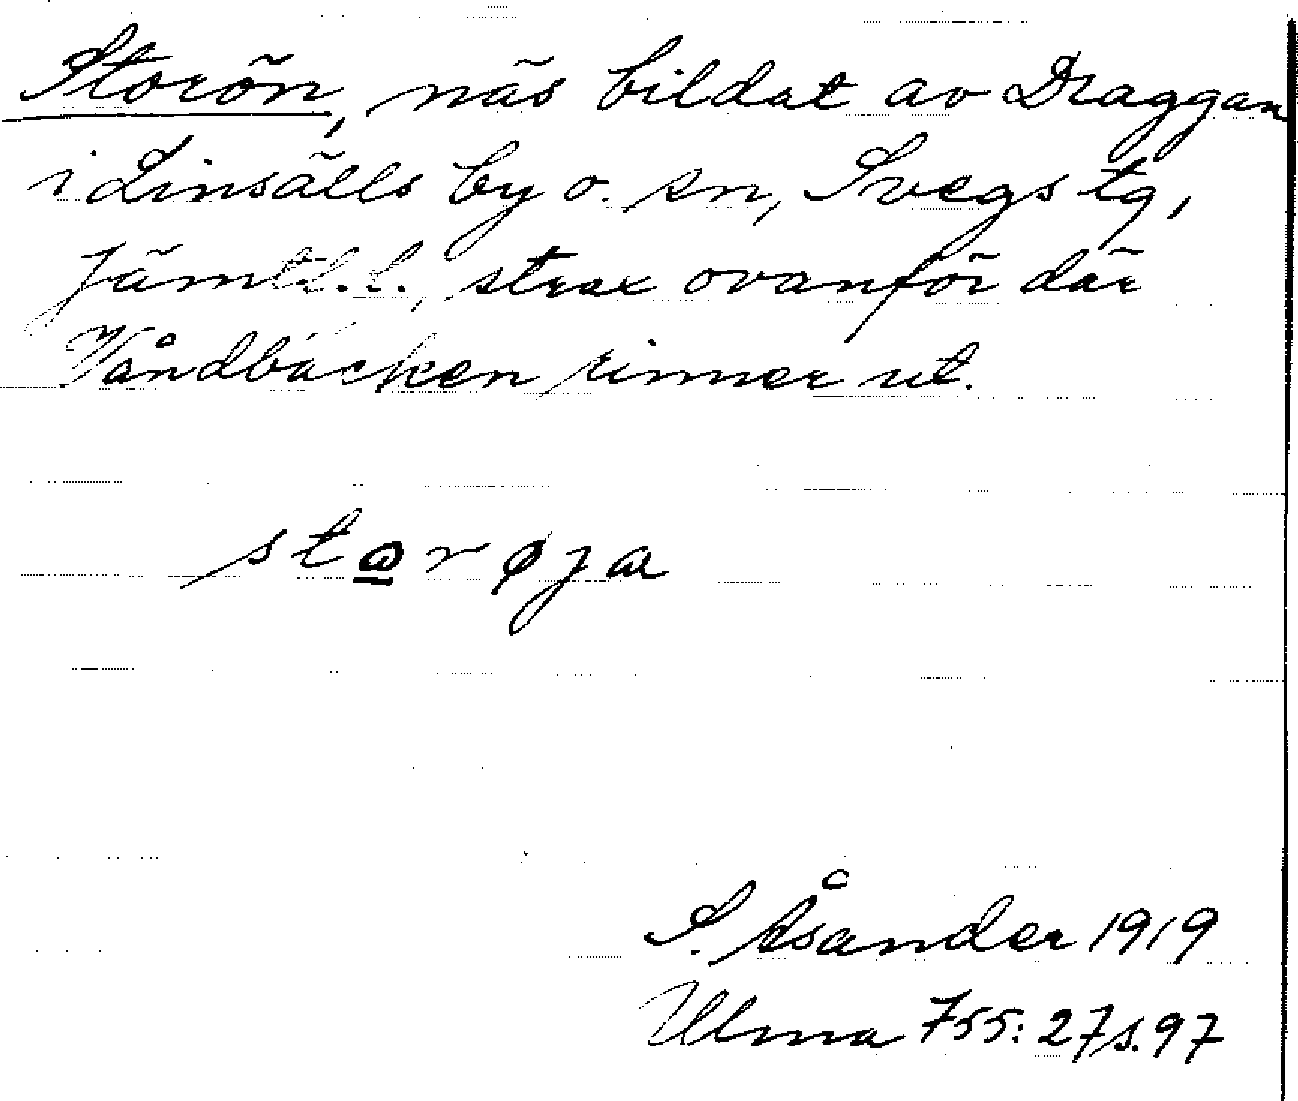 Storön, näs bildat av Draggan
i Linsälls by o. sn, Svegs tg,
Jämtl.l., strax ovanför där
Våndbäcken rinner ut.
starøja
S. Åsander 1919
Ulma 755:27 s. 97